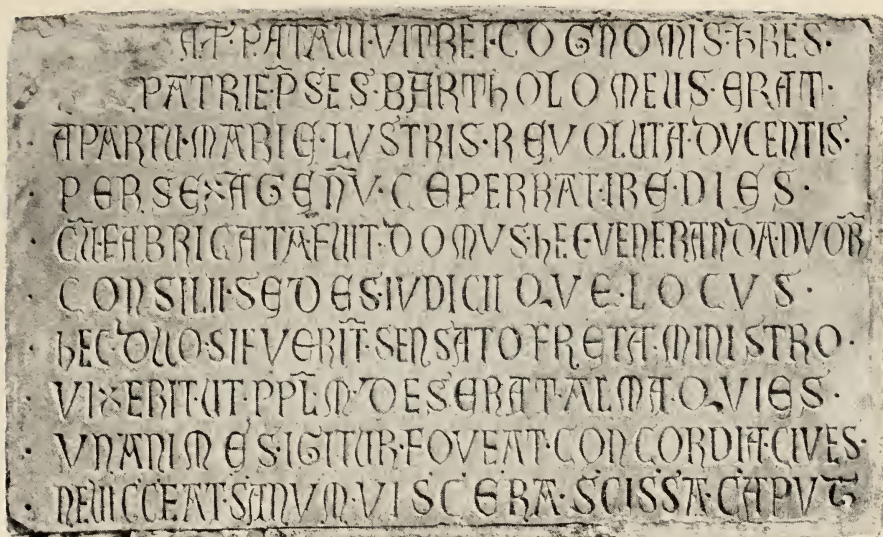 AT·PATAUI·VITREI·COGNOMIS·HRES·
PATRIE·P̄SES·BARTHOLOMEUS·ERAT·
·APARTU·MARIE·LVSTRIS·REVOLUTA·DVCENTIS·
·PERSEXAGENV̄·CEPERRAT·IRE·DIES·
·CŪ·FABRICATAFUIT·DOMVS·HEC·VENERANDA·DVOR̄
·CONSILII·SEDES·IVDICIIQVE·LOCVS·
·HEC·DUO·SIFVERIT̄·SENSATO·FRETA·MINISTRO·
·VIXERIT·UT·PPL̄M·DESERAT·ALMA·QVIES·
·VNANIMES·IGITUR·FOVEAT·CONCORDIA·CIVES·
·NEUICCEAT·SANVM·VISCERA·SCISSA·CAPVT